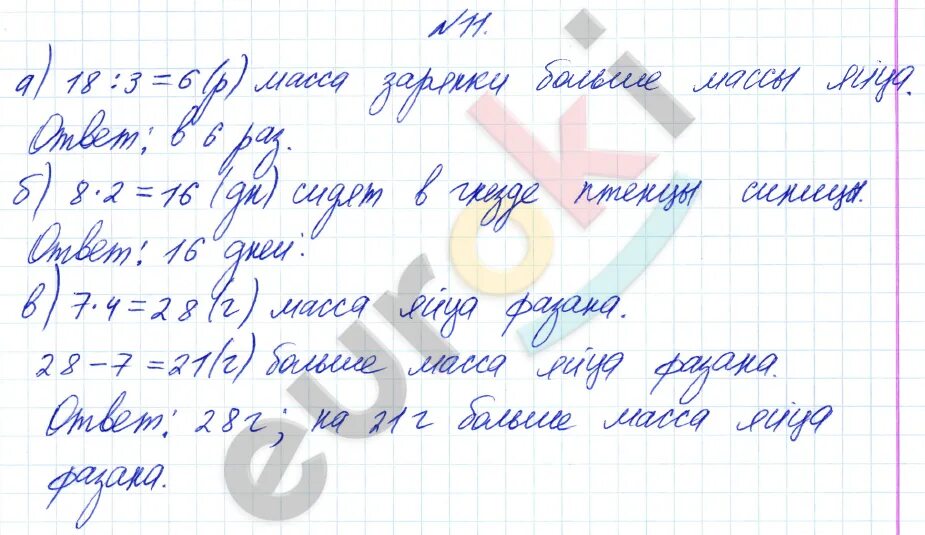 №11.
а) 18:3=6(р) масса зарянки больше массы яйца.
Ответ: в 6 раз.
б) 8·2=16 (дн) сидят в гнезде птенцы синицы.
Ответ: 16 дней.
в) 7·4=28(г) масса яйца фазана.
28-7=21(г) больше масса яйца фазана.
Ответ: 28г; на 21г больше масса яйца
фазана.
euroki